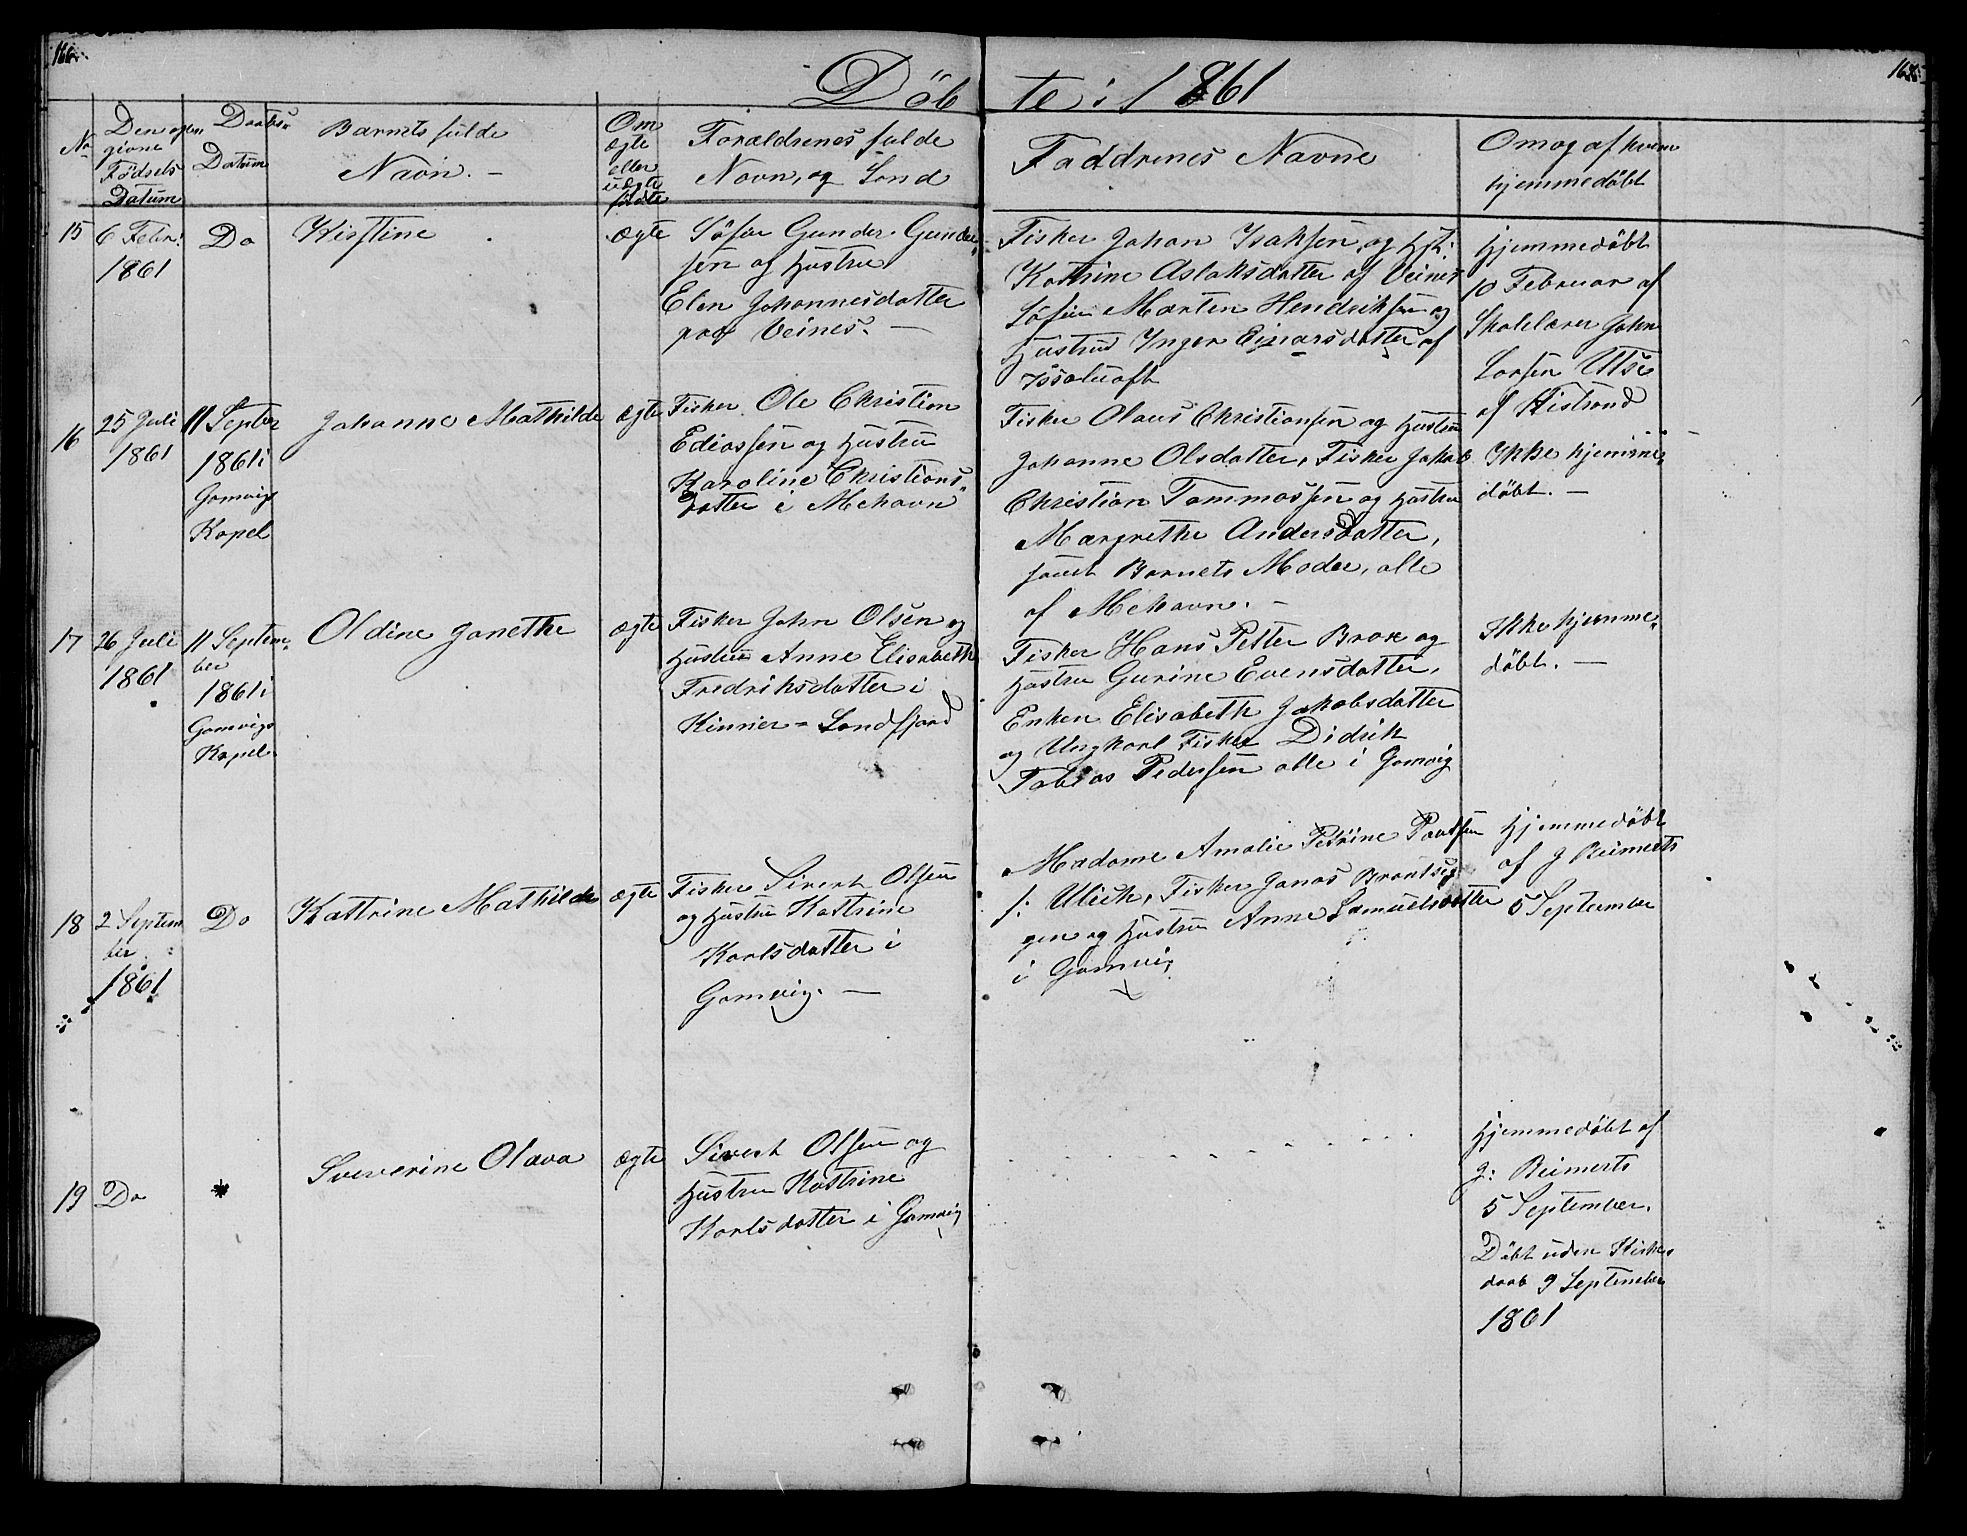 166.
Döb te i 1861
No
Den opgivne Fødsels Datum
Daabs Datum
Barnets fulde Navn. –
Om ægte eller uægte fødte
Forældrenes fulde Navn, og Stand
Faddrenes Navne
Om og af hvem hjemmedöbt
15
6 Febr: 1861
Do
Kistine
ægte
Søfin Gunder Gunder„
sen og Hustru
Elen Johannesdatter
paa Veines. –
Fisker Johan Isaksen og Hst:
Katrine Aslaksdatter af Veines
Søfin Marten Hendriksen og
Hustru Inger Einarsdatter af
hjemmedöbt
10 Februar af
Skolelærer John
Larsen Utse
af Kistrand
16
25 Juli
1861
11 Septbr
1861 i
Gamvigs
Kapel
Johanne Mathilde
ægte
Fisker Ole Christian
Ediassen og Hustru
Karoline Christians„
datter i Mehavn
Fisker Olaus Christiansen og Hustru
Johanne Olsdatter, Fisker Jakob
Christian Tommassen og Hustru
Margrethe Andersdatter,
samt Barnets Moder, alle
af Mehavn. –
Ikke hjemme„
döbt. –
17
26 Juli
1861
11 Septem„
ber
1861 i
Gamvigs
Kapel
Oldine Janethe
ægte
Fisker John Olsen og
Hustru Anne Elisabeth
Fredriksdatter i
Kinnier - Sandfjord
Fisker Hans Petter Brox og
Hustru Gurine Evensdatter,
Enken Elisabeth Jakobsdatter
og Ungkarl Fisker Didrik
Tobias Pedersen alle i Gamvig
Ikke hjemme„
döbt. –
18
2 Septem
ber
1861
Do
Kattrine Mathilde
ægte
Fisker Sivert Olsen
og Hustru Kattrine
Karlsdatter i
Gamvig. –
Madame Amalie Petrine Paulsen
f: Ulich, Fisker Jonas Brontsig
gen og Hustru Anne Samuelsdatter
i Gamvig
hjemmedöbt
af J Reimerts
5 September
19
Do
Severine Olava
ægte
Sivert Olsen og
Hustru Kattrine
Karlsdatter i Gamvig
Hjemmedöbt af
J: Reimerts
5 September.
Döbt uden Kirke
daab 9 September
1861